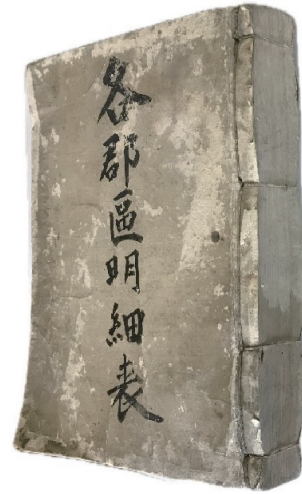 各郡區明細表